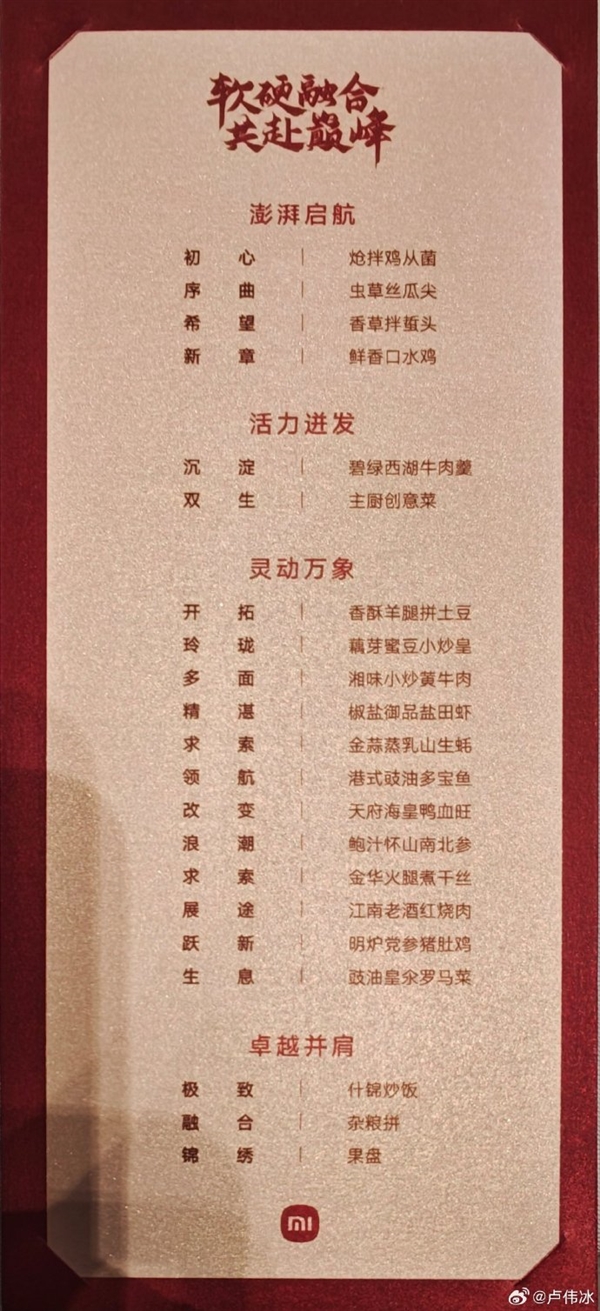 软硬融合
共赴巅峰
澎湃启航
初心 | 炝拌鸡从菌
序曲 | 虫草丝瓜尖
希望 | 香草拌蜇头
新章 | 鲜香口水鸡
活力迸发
沉淀 | 碧绿西湖牛肉羹
双生 | 主厨创意菜
灵动万象
开拓 | 香酥羊腿拼土豆
玲珑 | 藕芽蜜豆小炒皇
多面 | 湘味小炒黄牛肉
精湛 | 椒盐御品盐田虾
求索 | 金蒜蒸乳山生蚝
领航 | 港式豉油多宝鱼
改变 | 天府海皇鸭血旺
浪潮 | 鲍汁怀山南北参
求索 | 金华火腿煮干丝
展途 | 江南老酒红烧肉
跃新 | 明炉党参猪肚鸡
生息 | 豉油皇汆罗马菜
卓越并肩
极致 | 什锦炒饭
融合 | 杂粮拼
锦绣 | 果盘
mi
@卢伟冰